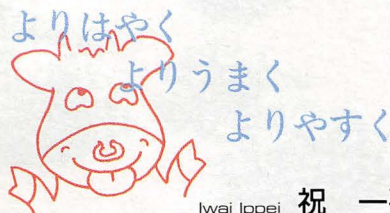 よりはやく
よりうまく
よりやすく
Iwai Ippei 祝 一